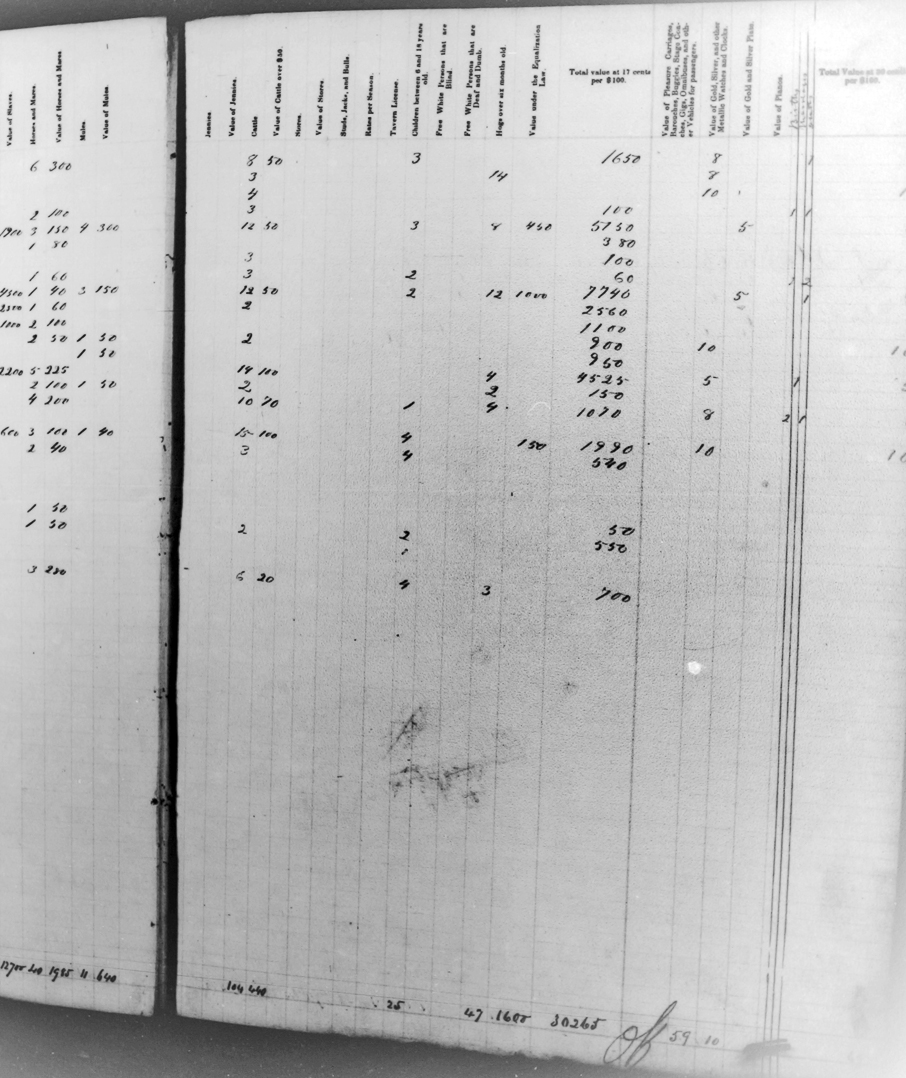 Value of Slaves. Horses and Mares. Value of Horses and Mares Mules. Value of Mules.
Jennies Value of Jennies. Cattle Value of Cattle over $50. Stores. Value of Stores. Studs, Jacks, and Bulls Rates per Season. Tavern License. Children between 6 and 18 years old. Free White Persons that are Blind. Free White Persons that are Deaf and Dumb. Hogs over six months old. Value under the Equalization Law. Total value at 17 cents per $100. Value of Pleasure Carriages, Barouches, Buggies, Stage Coaches, Gigs, Omnibuses, and other Vehicles for passengers. Value of Gold, Silver, and other Metallic Watches and Clocks. Value of Gold and Silver Plate. Value of Pianos. Total Value at 20 cents per $100.
6 300 8 50 3 1650 8 1
3 14 8
4 10
2 100 3 100 1 1
1900 3 150 4 300 12 50 3 8 450 5150 5
1 80 380
3 100
1 60 3 2 60
4500 1 40 3 150 12 50 2 12 1000 7740 5 1
2500 1 60 2 2560
1000 2 100 1100
2 50 1 50 2 900 10
1 50 950
2200 5 225 14 100 4 4525 5 1
2 100 1 50 2 2 150
4 200 10 70 1 4 1070 8 2 1
600 3 100 1 40 15 100 4 150 1990 10
2 40 3 4 540
1 50
1 50 2 2 50
550
3 280 6 20 4 3 700
12700 40 1985 11 640 104 440 25 47 1600 30265 59 10